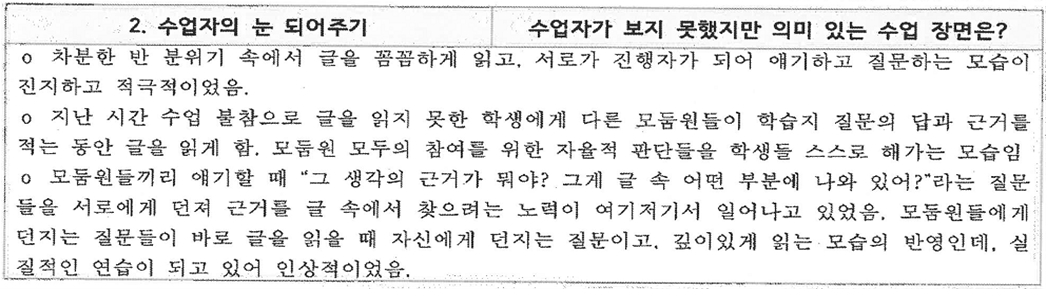 2. 수업자의 눈 되어주기 수업자가 보지 못했지만 의미 있는 수업 장면은?
o 차분한 반 분위기 속에서 글을 꼼꼼하게 읽고, 서로가 진행자가 되어 얘기하고 질문하는 모습이
진지하고 적극적이었음.
o 지난 시간 수업 불참으로 글을 읽지 못한 학생에게 다른 모둠원들이 학습지 질문의 답과 근거를
적는 동안 글을 읽게 함. 모둠원 모두의 참여를 위한 자율적 판단들을 학생들 스스로 해가는 모습임
o 모둠원들끼리 얘기할 때 "그 생각의 근거가 뭐야? 그게 글 속 어떤 부분에 나와 있어?"라는 질문
들을 서로에게 던져 근거를 글 속에서 찾으려는 노력이 여기저기서 일어나고 있었음. 모둠원들에게
던지는 질문들이 바로 글을 읽을 때 자신에게 던지는 질문이고, 깊이있게 읽는 모습의 반영인데, 실
질적인 연습이 되고 있어 인상적이었음.